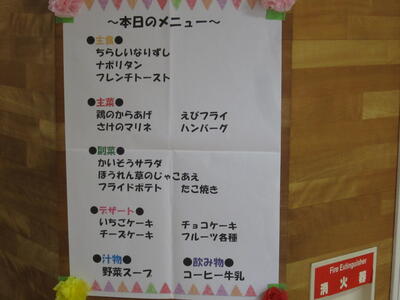 ～本日のメニュー～
●主食●
ちらしいなりずし
ナポリタン
フレンチトースト
●主菜●
鶏のからあげ　えびフライ
さけのマリネ　ハンバーグ
●副菜●
かいそうサラダ
ほうれん草のじゃこあえ
フライドポテト　たこ焼き
●デザート●
いちごケーキ　チョコケーキ
チーズケーキ　フルーツ各種
●汁物●　●飲み物●
野菜スープ　コーヒー牛乳
Fire Extinguisher
消火器